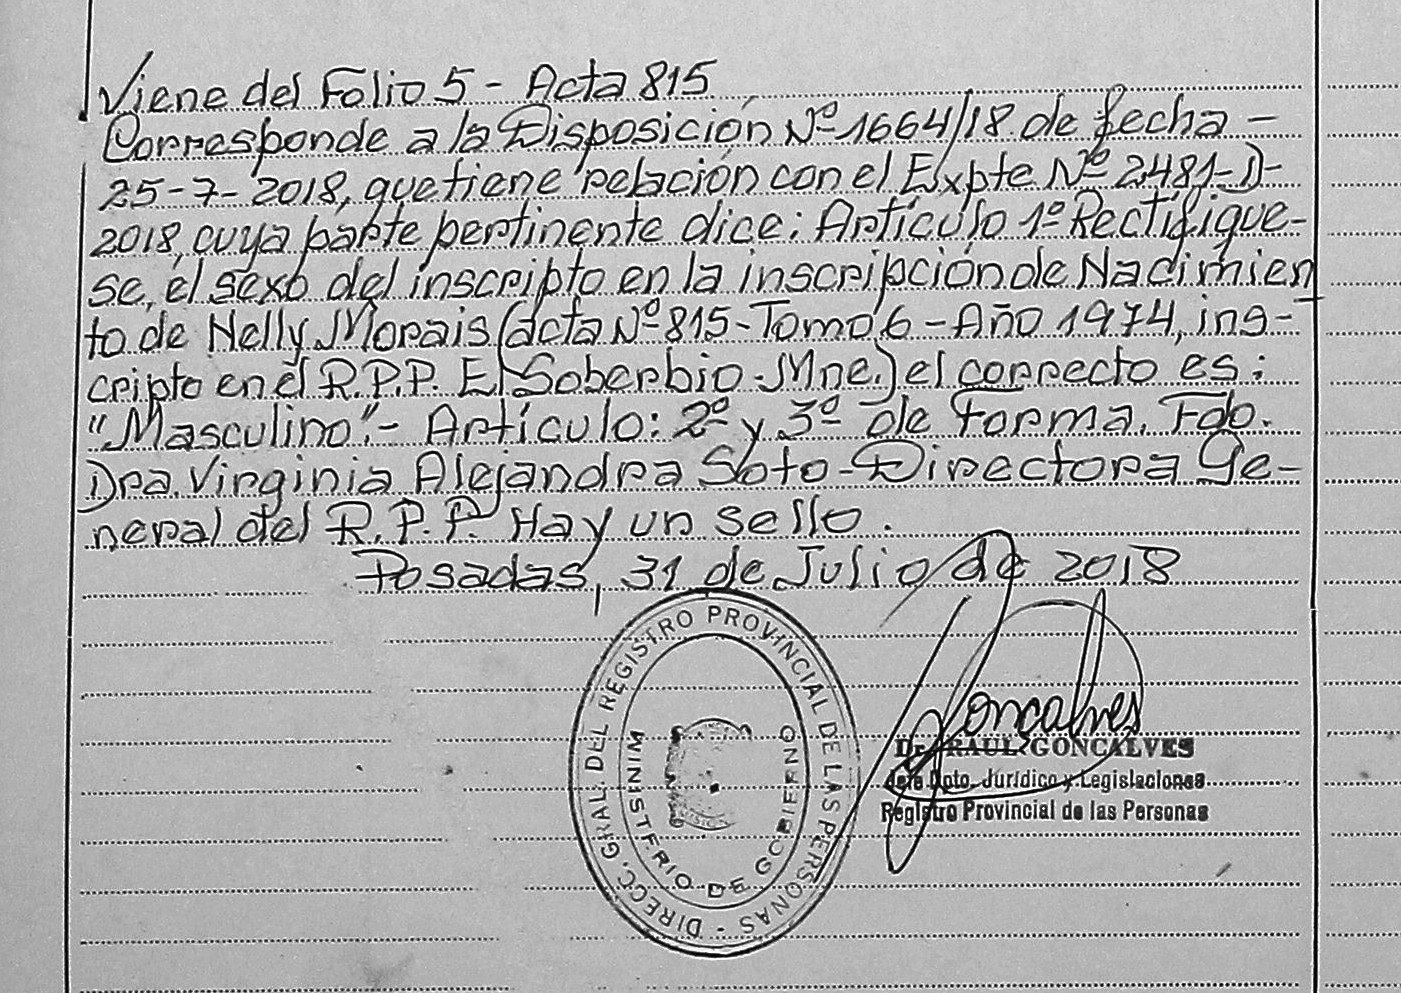 Viene del Folio 5 - Acta 815
Corresponde a la Disposición Nº 1664/18 de fecha -
25-7-2018, que tiene relación con el Expte Nº 2481-D-
2018, cuya parte pertinente dice: Artículo 1º Rectifique-
se, el sexo del inscripto en la inscripción de Nacimien
to de Nelly Morais (acta Nº 815 - Tomo 6 - Año 1974, ins-
cripto en el R.P.P. El Soberbio - Mne.) el correcto es:
"Masculino". - Artículo: 2º y 3º de Forma. Fdo.
Dra. Virginia Alejandra Soto - Directora Ge-
neral del R.P.P. Hay un sello.
Posadas, 31 de Julio de 2018
DIRECC. GRAL. DEL REGISTRO PROVINCIAL DE LAS PERSONAS -
MINISTERIO DE GOBIERNO
Goncalves
Dr. RAUL GONCALVES
Jefe Dpto. Jurídico y Legislaciones
Registro Provincial de las Personas